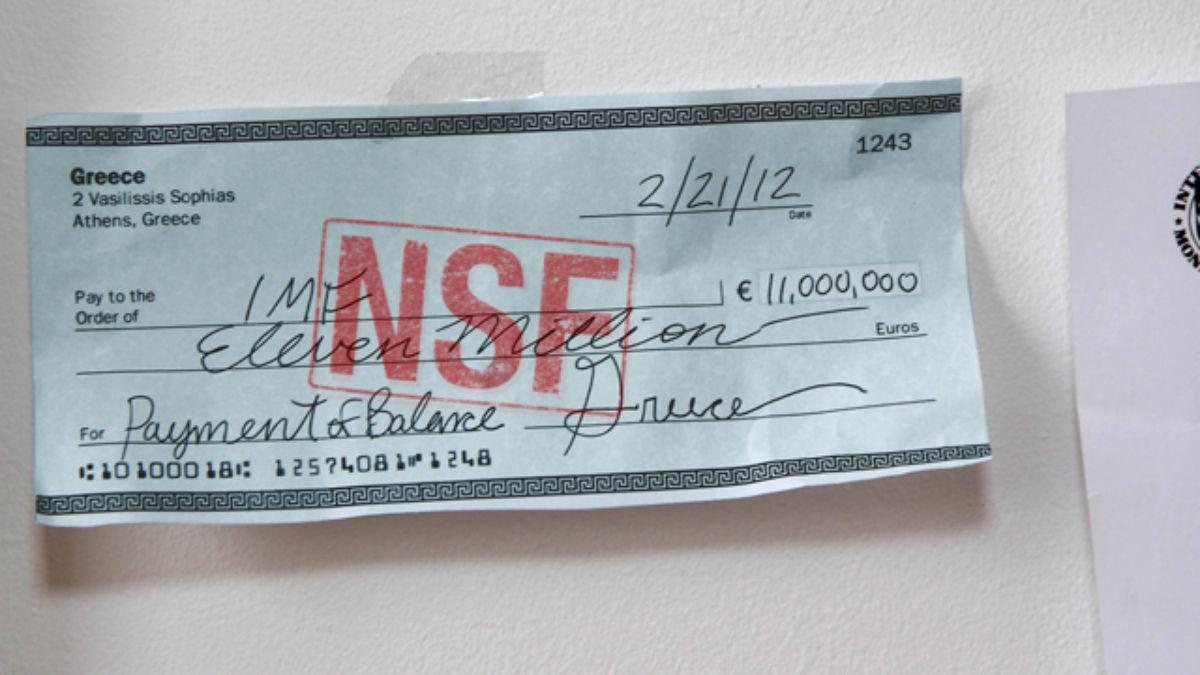 1243
Greece
2 Vasilissis Sophias
Athens, Greece
2/21/12
Date
NSF
Pay to the
Order of
IMF
€ 11,000,000
Eleven Million
Euros
For Payment of Balance
Greece
⑆10100018⑆ 12574081⑈1248